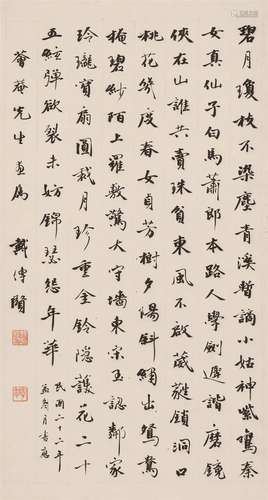 碧月瓊枝不染塵青溪暫謫小姑神紫鸞秦
女真仙子白馬蕭郎本路人學劍遲諧磨鏡
俠在山誰共賣珠貧東風不啟葳蕤鎖洞口
桃花幾度春女自芳樹夕陽斜網出鴛鴦
掩碧紗陌上羅敷驚大守墻東宋玉認鄰家
玲瓏寶扇圓裁月珍重金鈴隱護花二十
五絃彈欲裂未妨錦瑟怨年華
菴先生直屬 戴傳賢
民國二十二年
月書應